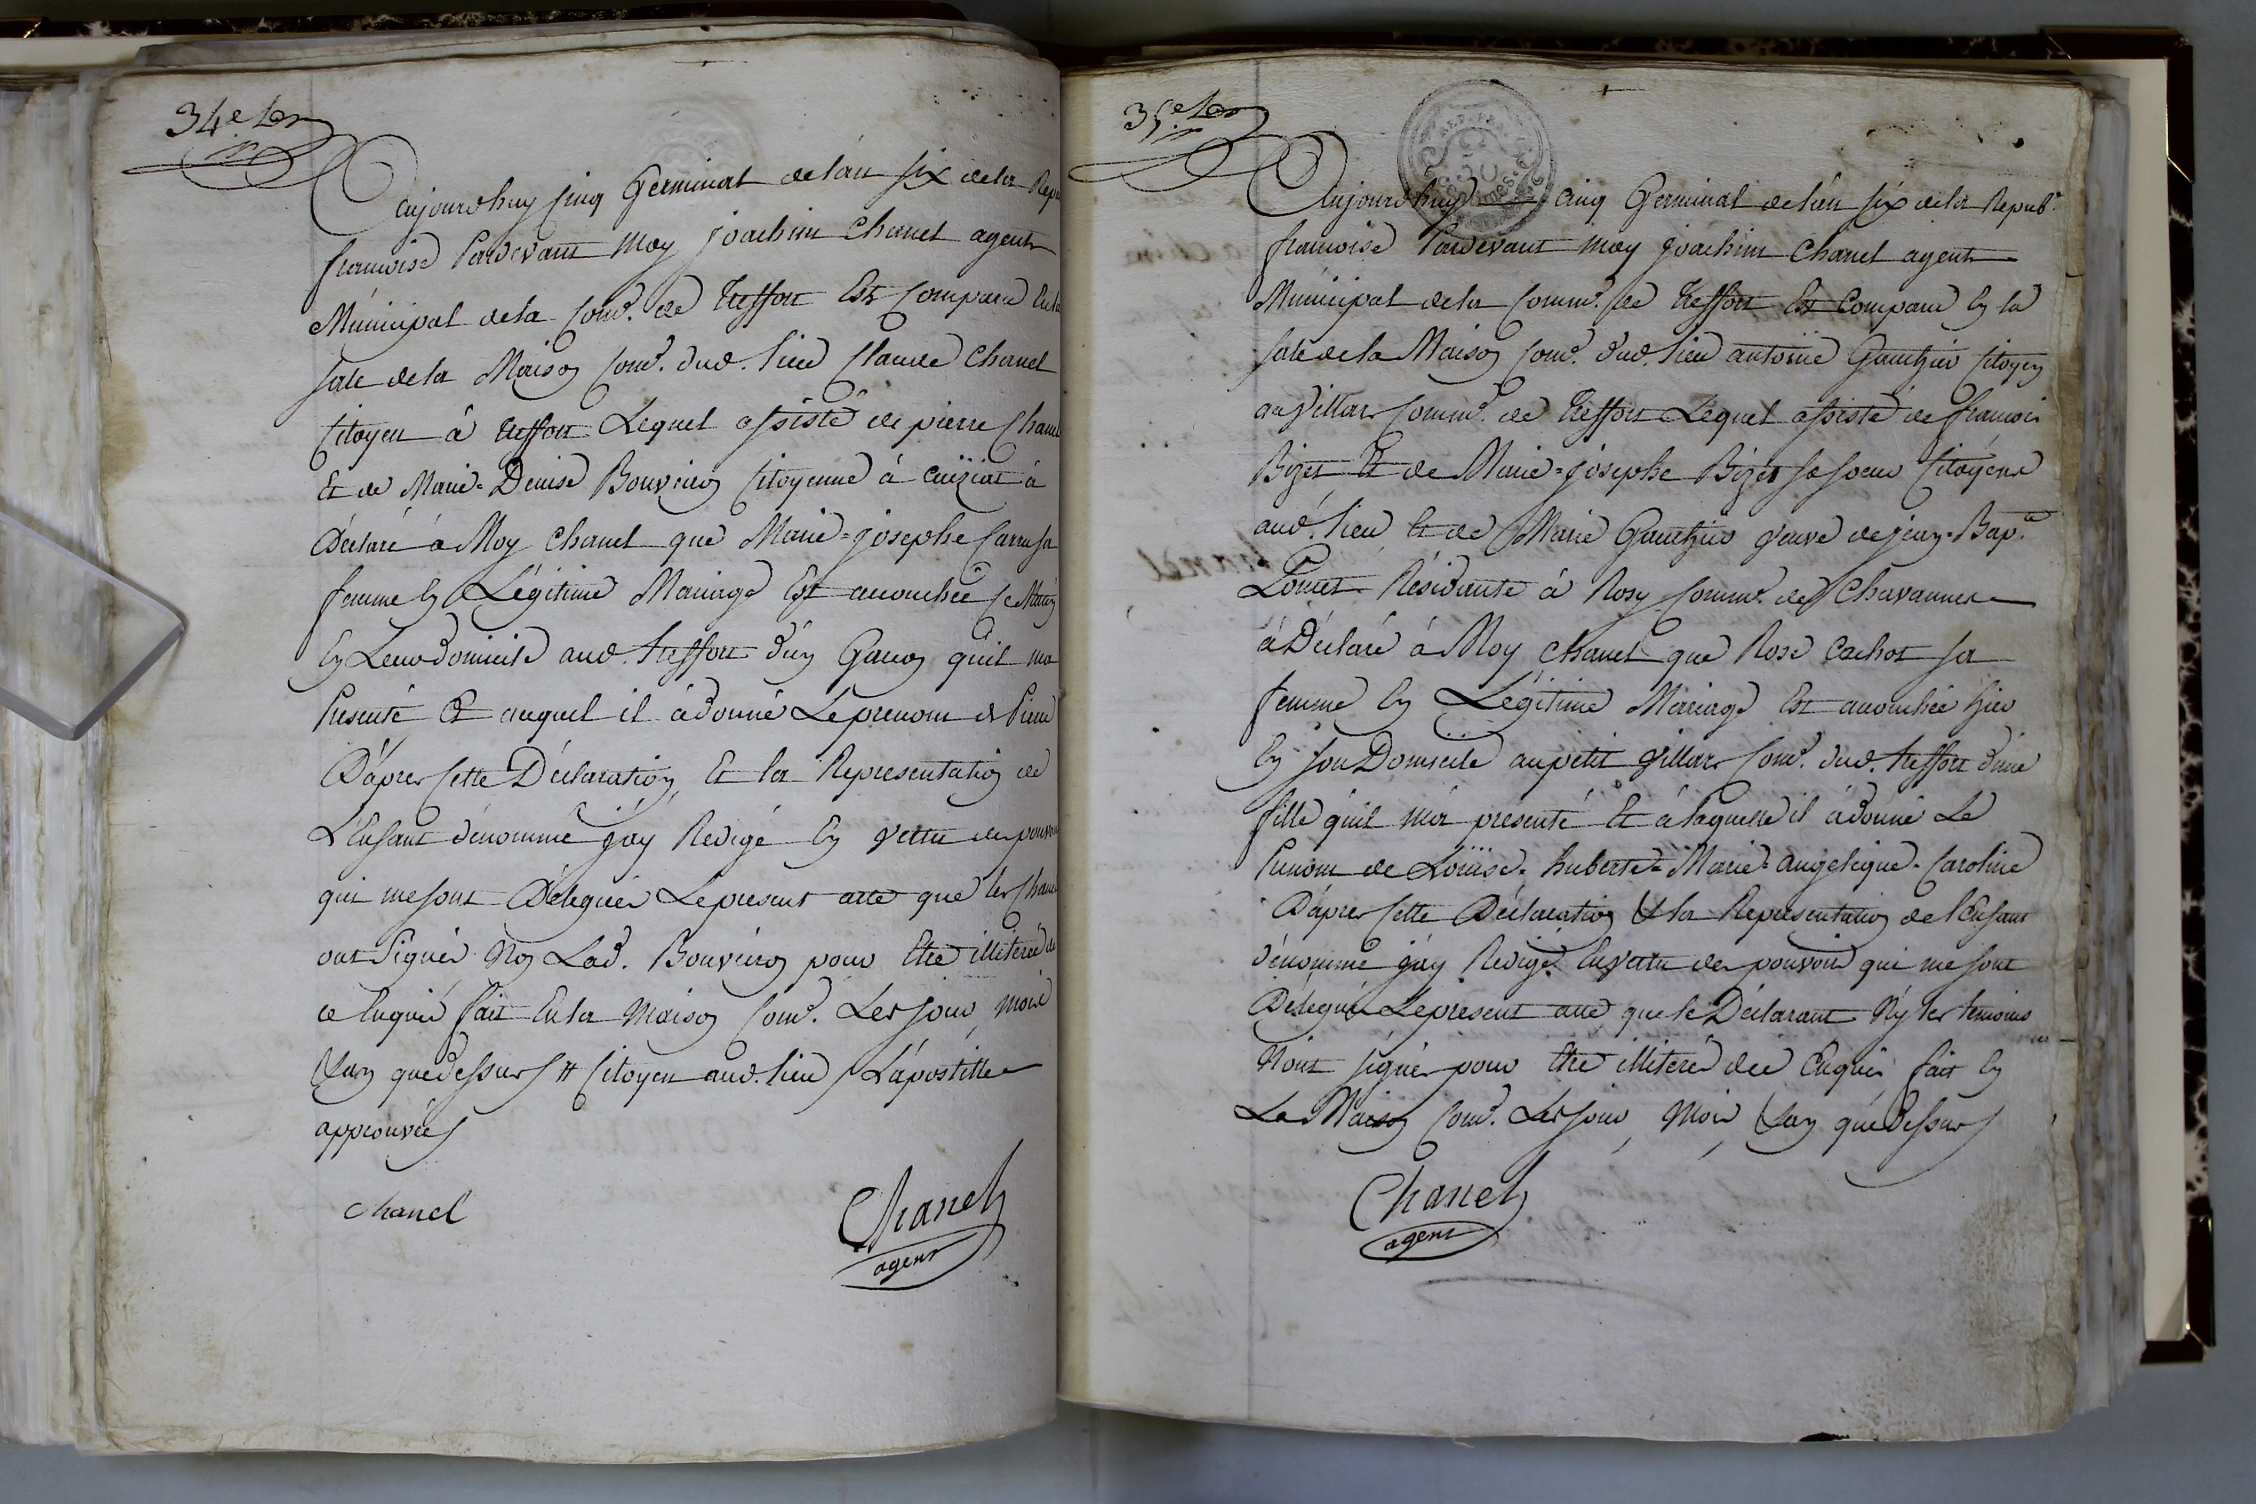 34.e
Aujourdhuy Cinq Germinal de lan Six de la Repu
francoise Pardevant Moy joachim Chanel agent
Municipal de la Com.e de Treffort Est Comparu En la
Sale de la Maison Com.e dud. lieu Claude Chanel
Citoyen à Treffort Lequel assisté de pierre Chanel
Et de Marie-Denise Bouveiron Citoyenne à Cuiziat à
Déclaré à Moy Chanel que Marie-josephe Carru sa
femme En Légitime Mariage Est accouchée Ce Matin
En Leur domicile aud. treffort d'un Garcon qu'il ma
Presenté Et auquel il à donné Le prenom de Pierre
D'apres Cette Déclaration, Et la Representation de
L'Enfant dénommé j'ay Redigé En vertu des pouvoir
qui me sont Délegués Le present acte que les Chanel
ont Signés Non Lad. Bouveiron pour Etre illiterée de
ce Enquis fait En la Maison Com.e Les jour, Mois
Et an que dessus # Citoyen aud. lieu L'apostille
approuvée
Chanel
Chanel
agent
35.e
Aujourdhuy Cinq Germinal de l'an Six de la Repub.e
francoise Pardevant Moy joachim Chanel agent
Municipal de la Comm.e de Treffort Est Comparu En la
Sale de la Maison Com.e dud. lieu antoine Gauthier Citoyen
au Villars Comm.e de Treffort Lequel assisté de francois
Bizet Et de Marie-josephe Bizet sa soeur Citoyens
aud. lieu Et de Marie Gauthier veuve de jean-Bap.te
Résidante à Rosy Comm.e de Chavannes
à Déclaré à Moy Chanel que Rose Cachot sa
femme En Légitime Mariage Est accouchée hier
En son Domicile au petit Villars Com.e dud. treffort d'une
fille qu'il m'a presenté Et à laquelle il à donné Le
Prenom de Louise-huberte-Marie-angelique-Caroline
D'apres Cette Déclaration Et la Representation de l'Enfant
dénommé j'ay Redigé En vertu des pouvoirs qui me sont
Délegués Le present acte que le Déclarant Ny les temoins
N'ont signés pour Etre illiterés de ce Enquis fait En
La Maison Com.e Les jour, Mois, Et an que dessus
Chanel
agent